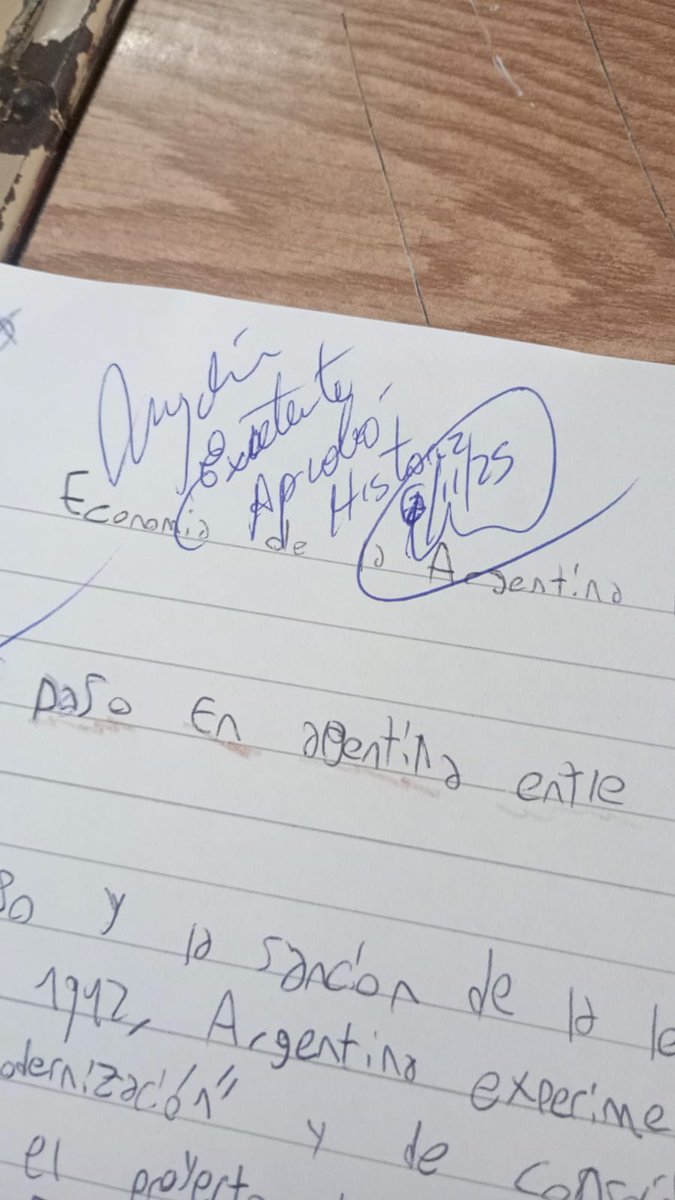 Excelente,
Aprobó
Historia
/11/25
Economia de la Argentina
paso En agentina entre
80 y la sanción de la le
1912, Argentina experime
odernización" y de
el proyect